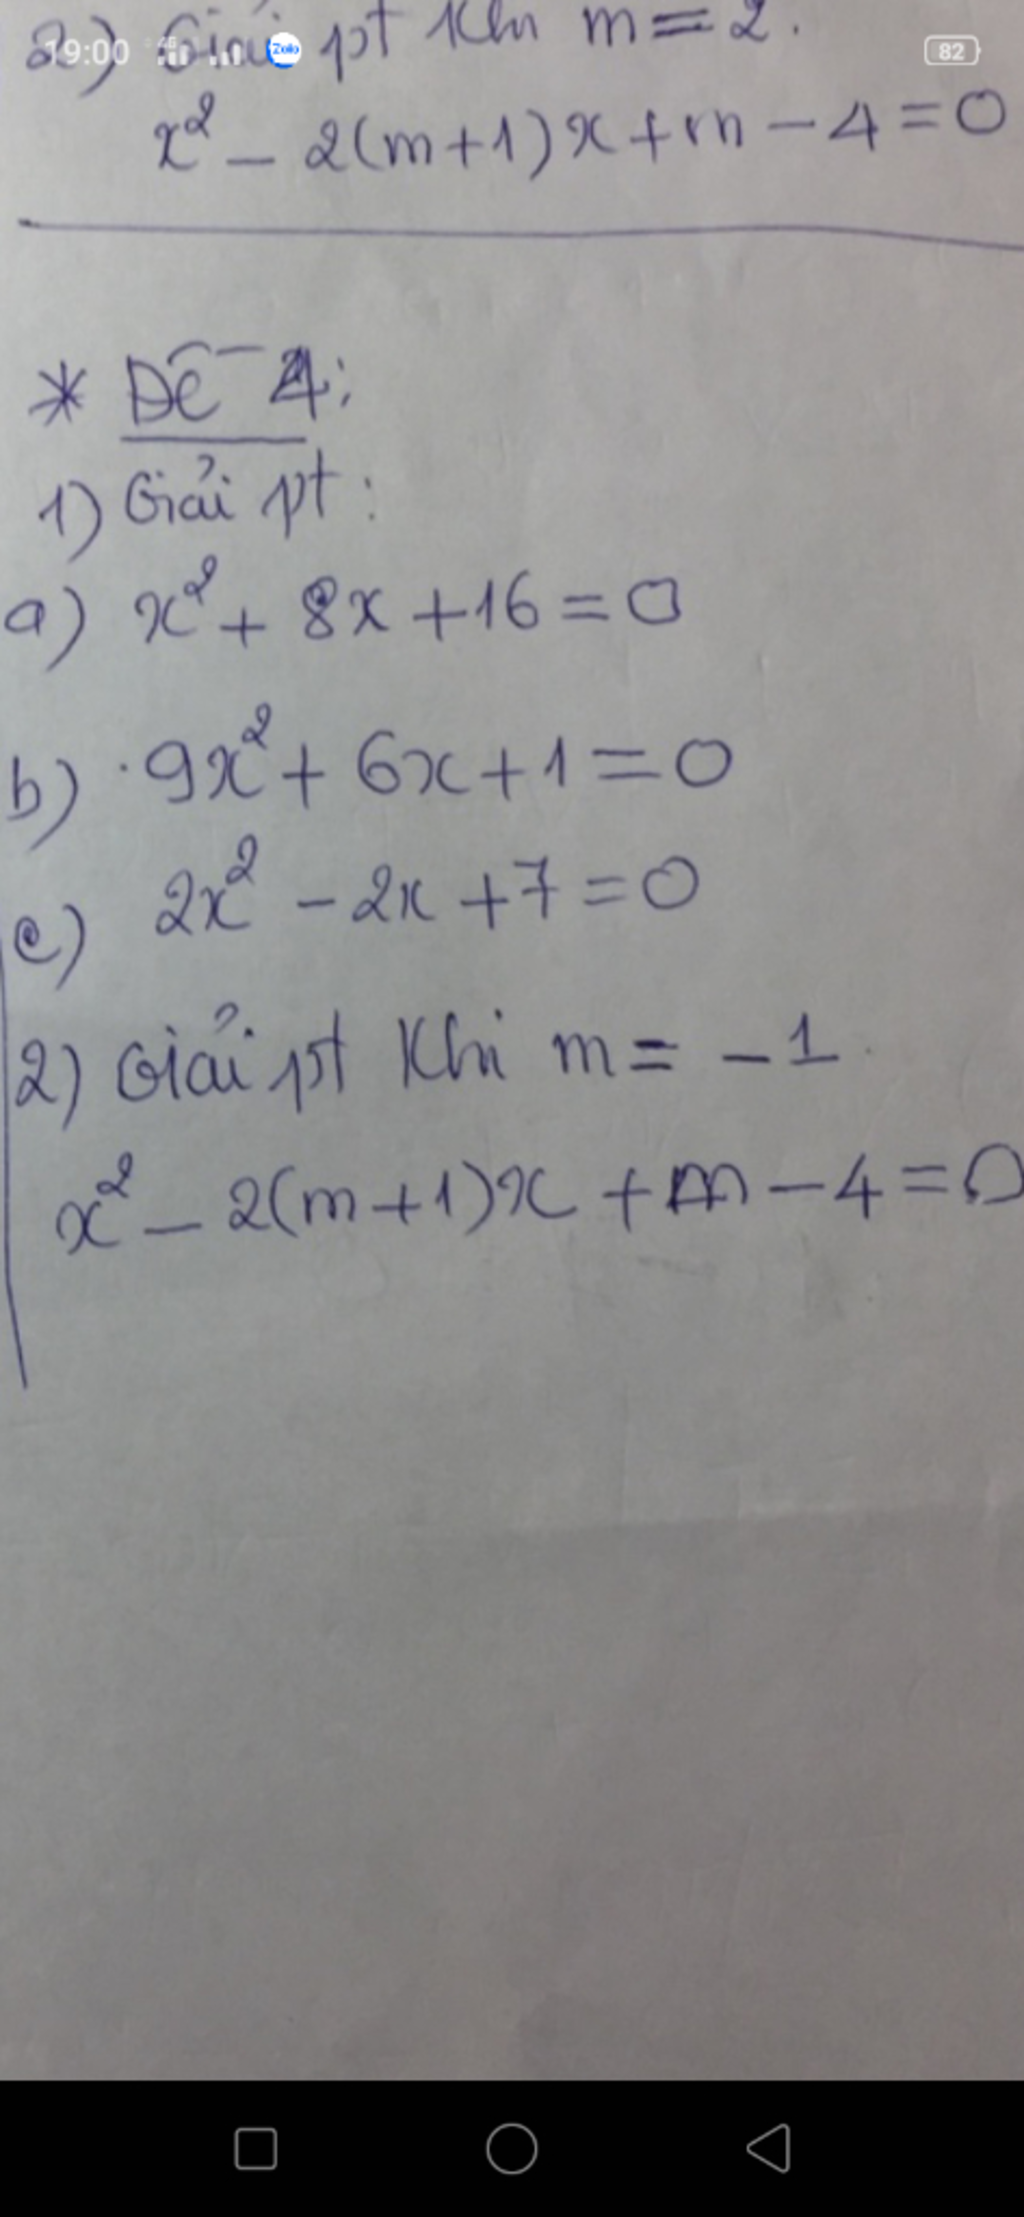 19:00
Zalo
82
2) Giải pt Khi m = 2.
x² - 2(m+1)x + m - 4 = 0
* Đề 4:
1) Giải pt:
a) x² + 8x + 16 = 0
b) 9x² + 6x + 1 = 0
c) 2x² - 2x + 7 = 0
2) Giải pt Khi m = -1
x² - 2(m+1)x + m - 4 = 0